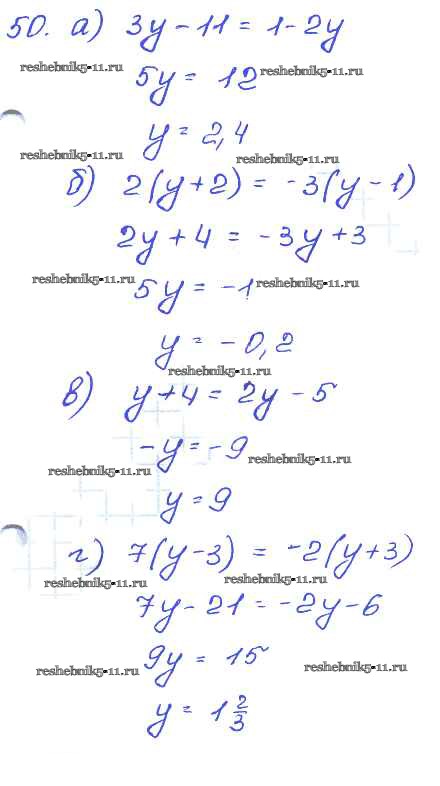 50. а) 3y - 11 = 1 - 2y
reshebnik5-11.ru
5y = 12 reshebnik5-11.ru
y = 2,4
reshebnik5-11.ru reshebnik5-11.ru
б) 2(y + 2) = -3(y - 1)
2y + 4 = -3y + 3
reshebnik5-11.ru 5y = -1 reshebnik5-11.ru
y = -0,2
reshebnik5-11.ru
в) y + 4 = 2y - 5
-y = -9 reshebnik5-11.ru
reshebnik5-11.ru
y = 9
г) 7(y - 3) = -2(y + 3)
reshebnik5-11.ru reshebnik5-11.ru
7y - 21 = -2y - 6
9y = 15
reshebnik5-11.ru reshebnik5-11.ru
y = 1 2/3